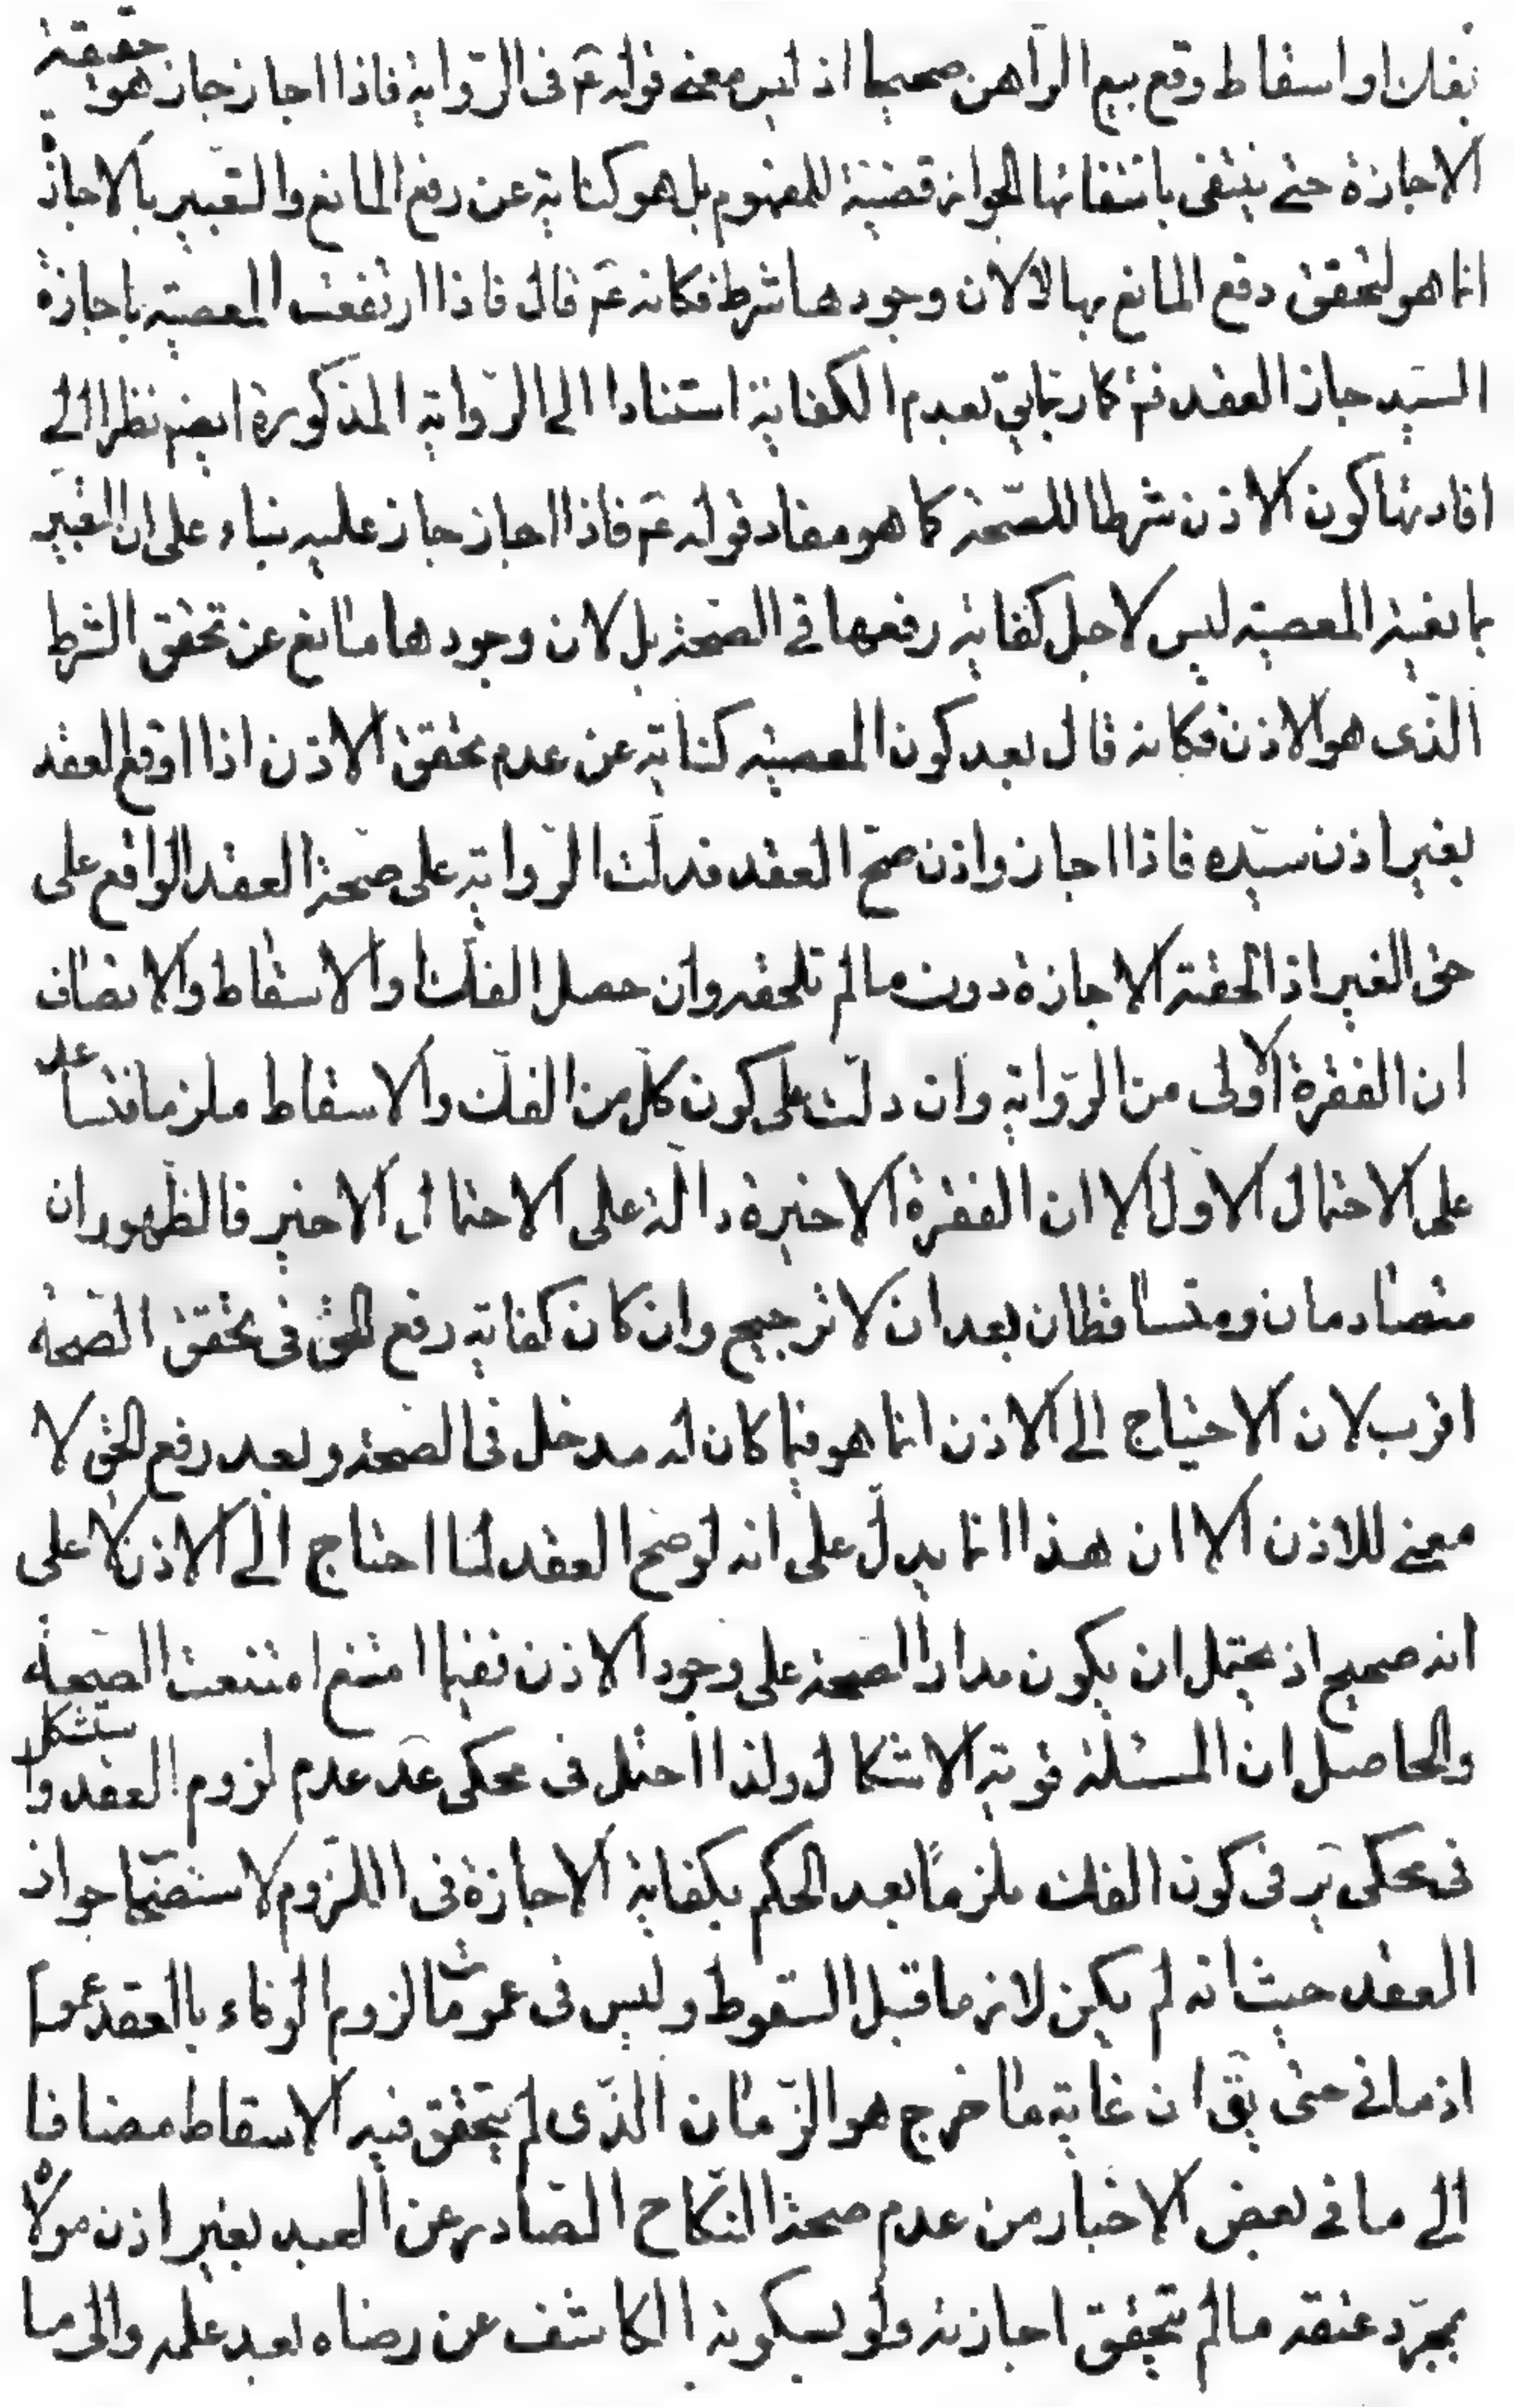 بفك او اسقاط وقع بيع الرّاهن صحيحا اذ ليس معنى قوله عَم فى الرّواية فاذا اجاز جاز هو حقيقة
الاجازة حتى ينتفى بانتفائها الجواز قضيّة للمفهوم بل هو كناية عن رفع المانع والتعبير بالاجازة
انما هو لتحقق دفع المانع بها لا لان وجودها شرط فكانه عَم قال فاذا ارتفعت المعصية باجازة
السيّد جاز العقد نَعَم كما ربما يجاب بعدم الكفاية استنادا الى الرّواية المذكورة ايضم نظرا الى
افادتها كون الاذن شرطا للصّحة كما هو مفاد قوله عَم فاذا اجاز جاز عليه بناء على ان التعبير
بما بقية المعصية ليس لاجل كفاية رفعها فى الصّحة بل لان وجودها مانع عن تحقق الشرط
الّذى هو الاذن فكانه قال بعد كون المعصية كناية عن عدم تحقق الاذن اذا اوقع العقد
بغير اذن سيّده فاذا اجاز واذن صحّ العقد فدلّت الرّواية على صحّة العقد الواقع على
حق الغير اذا لحقته الاجازة دون ما لم تلحقه وان حصل الفكّ او الاسقاط والانصاف
ان الفقرة الاولى من الرّواية وان دلّت على كون كلّ من الفكّ والاسقاط ملزما فتساعد
على الاحتمال الاوّل الا ان الفقرة الاخيرة دالّة على الاحتمال الاخير فالظّهوران
متصادمان ومتساقطان بعد ان لا ترجيح وان كان كفاية رفع الحق فى تحقق الصّحة
اقرب لان الاحتياج الى الاذن انما هو فيما كان له مدخل فى الصّحة وبعد رفع الحق لا
معنى للاذن الا ان هذا انما يدلّ على انه لو صحّ العقد لما احتاج الى الاذن لا على
انه صحيح اذ يحتمل ان يكون مدار الصّحة على وجود الاذن ففيما امتنع امتنعت الصّحة
والحاصل ان المسئلة قوية الاشكال ولذا احتمل فى محكى عَد عدم لزوم العقد واستشكل
فى محكى يَر فى كون الفك ملزمًا بعد الحكم بكفاية الاجازة فى اللّزوم لاستصحاب جواز
العقد حيث انه لم يكن لازما قبل السقوط وليس فى عمومات لزوم الوفاء بالعقد عموم
ازمانى حتى يَقى ان غاية ما خرج هو الزّمان الّذى لم يتحقق فيه الاسقاط مضافا
الى ما فى بعض الاخبار من عدم صحّة النّكاح الصّادر عن العبد بغير اذن مولاه
بمجرّد عتقه ما لم تتحقق اجازته ولو بسكوته الكاشف عن رضاه بعد علمه والى ما